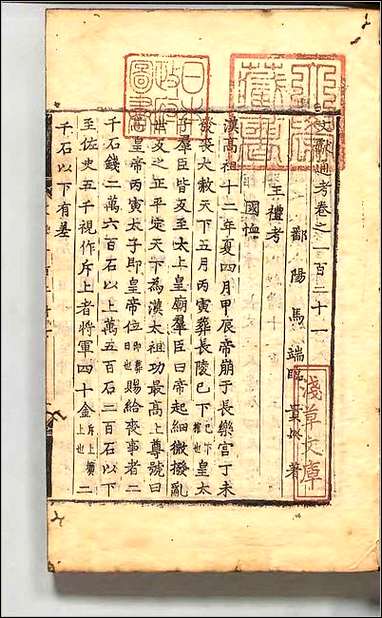 文獻通考卷之一百二十一
鄱陽馬端臨貴與著
王禮考
國恤
漢高祖十二年夏四月甲辰帝崩于長樂宮丁未
發喪大赦天下五月丙寅葬長陵已下皇太
子羣臣皆反至太上皇廟羣臣曰帝起細微撥亂
世反之正平定天下為漢太祖功最高上尊號曰
高皇帝丙寅太子即皇帝位賜給喪事者二
千石錢二萬六百石以上萬五百石二百石以下
至佐史五千視作斥上者將軍四十金二
千石以下有差
日本
政府
圖書
淺草文庫